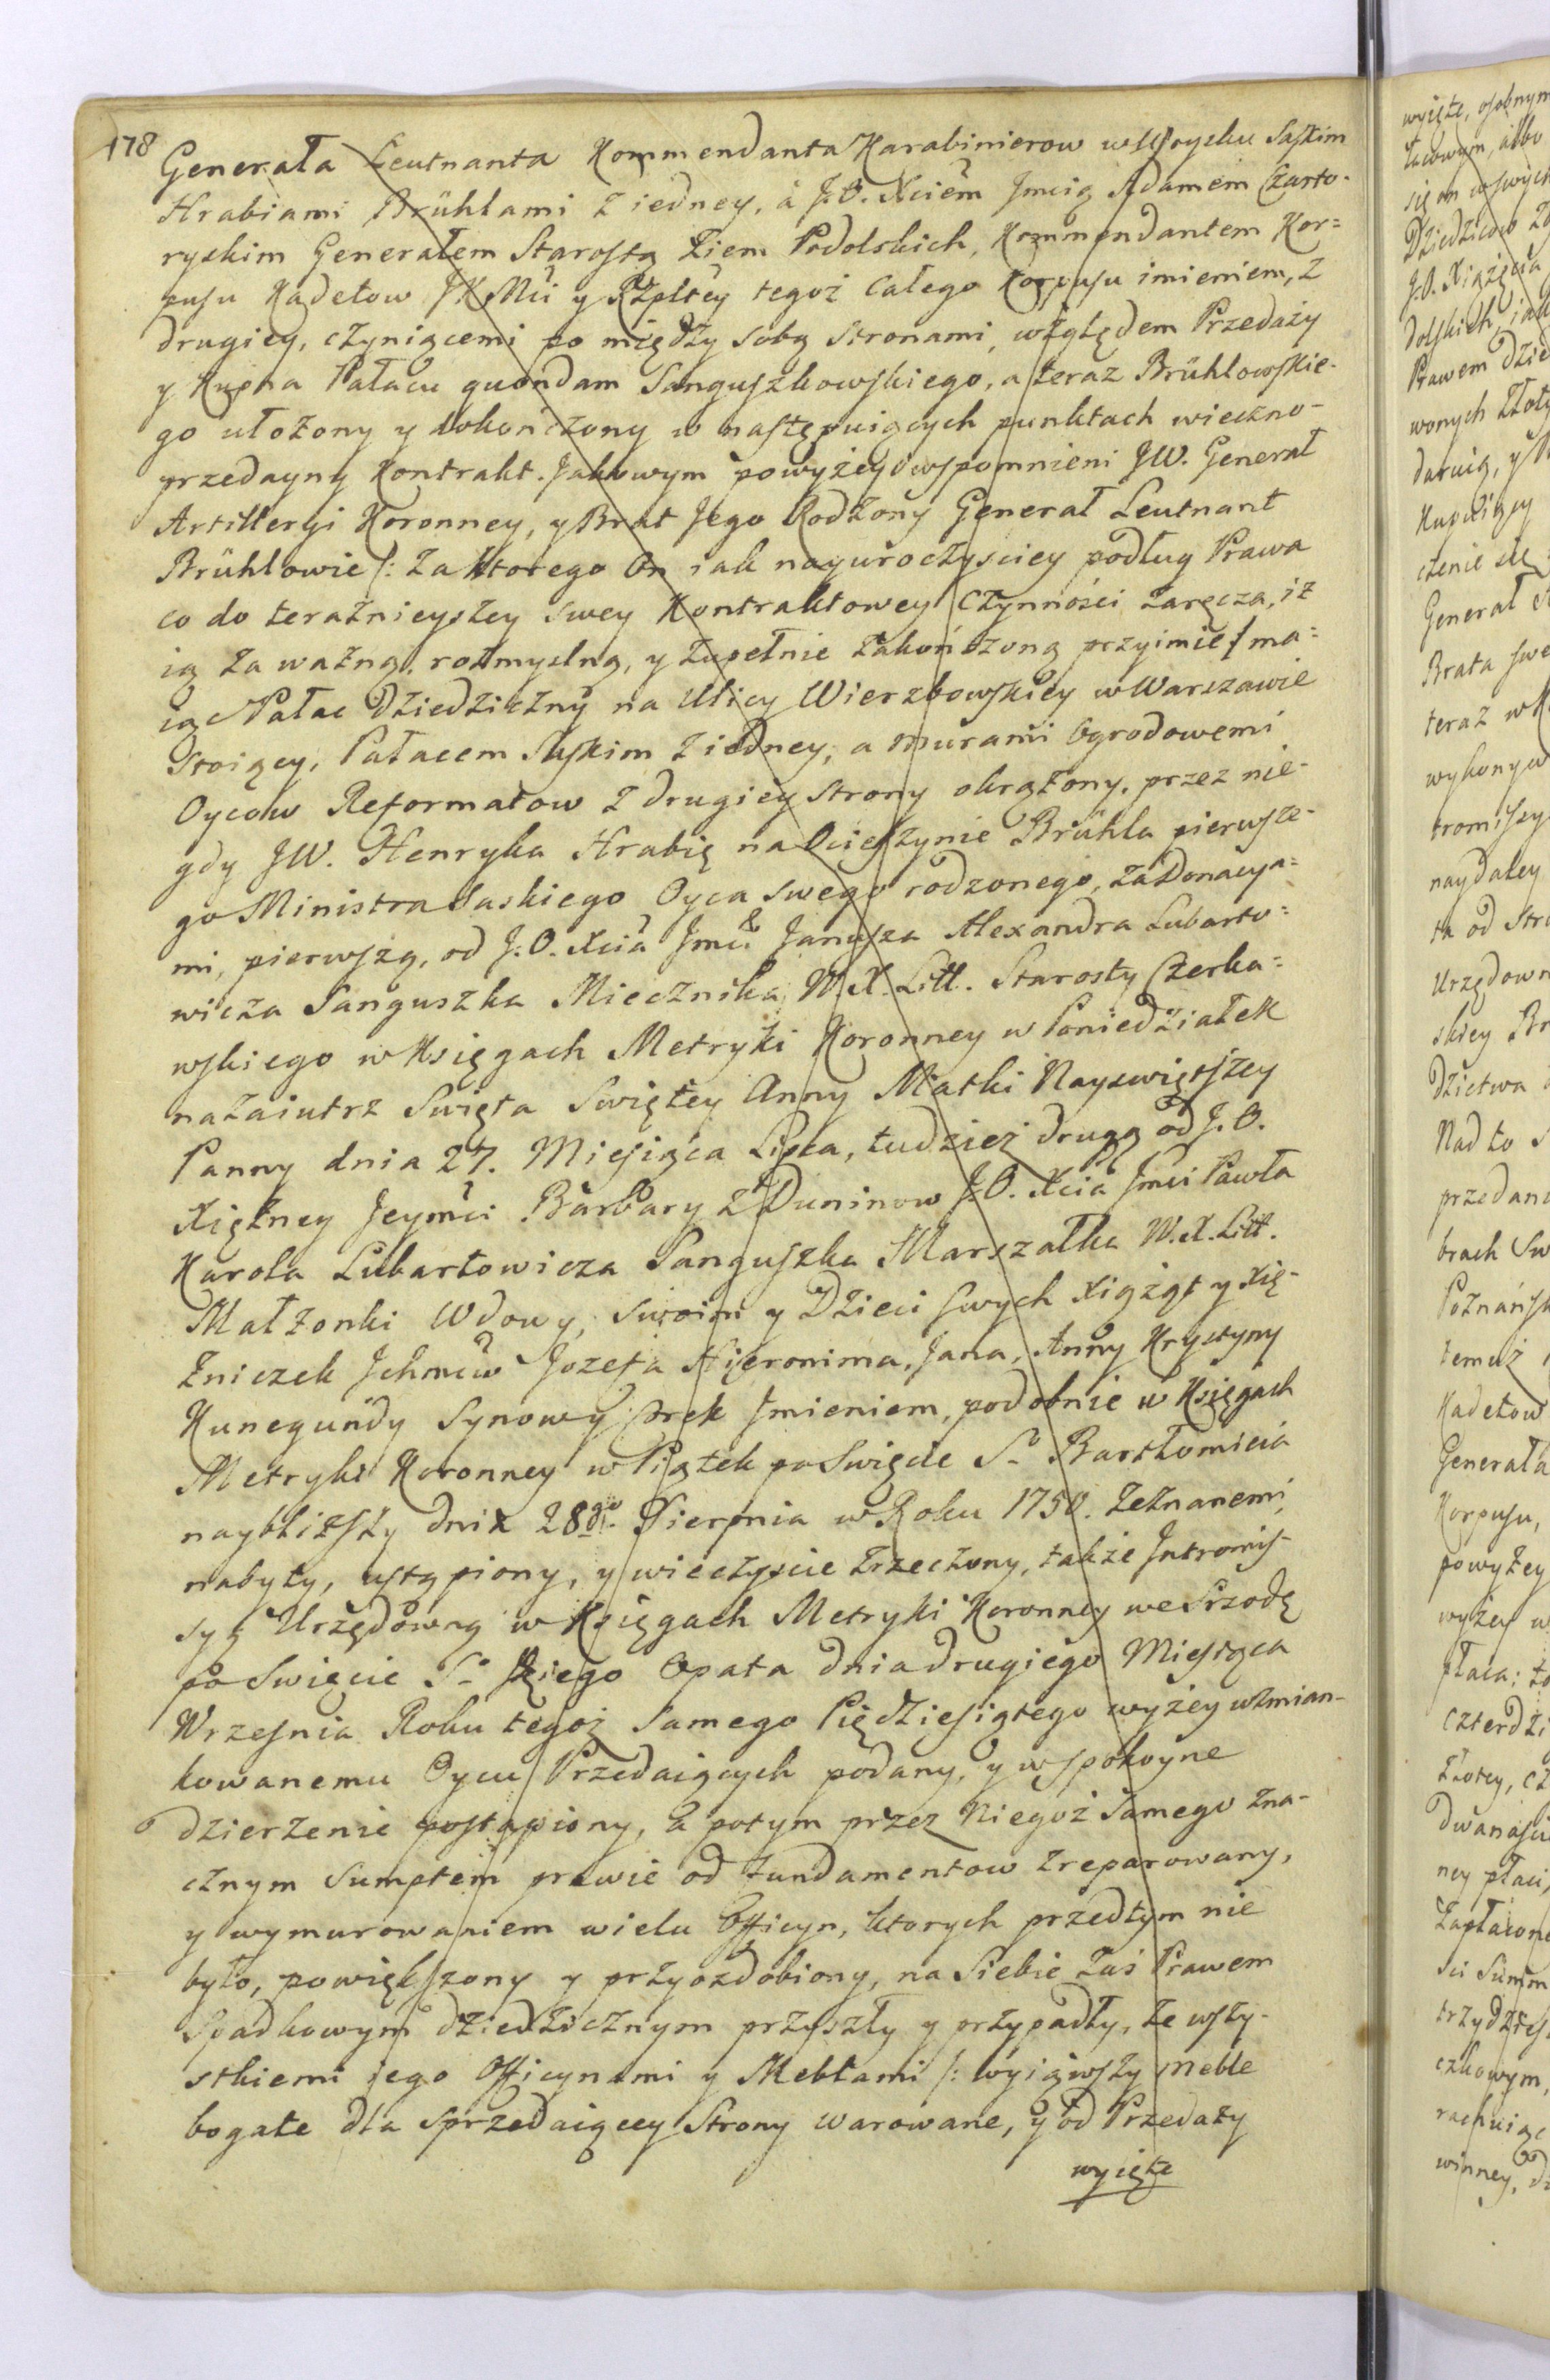 178
Generała Leutnanta Kommendanta Karabinierow w Woysku Saskim
Hrabiami Brühlami z iedney, á J.O. Xciem Jmcią Adamem Czarto-
ryskim Generałem Starostą Ziem Podolskich, Kommendantem Kor=
pusu Kadetow JKMci y Rzpltey tegoż całego Korpusu imieniem, z
drugiey, czyniącemi po między sobą Stronami, względem Przedaży
y Kupna Pałacu quondam Sanguszkowskiego, a teraz Brühlowskie-
go ułożony y dokończony w następuiących punktach wieczno-
przedayny Kontrakt. Jakowym powyżey wspomnieni JW. Generał
Artilleryi Koronney, y Brat Jego Rodzony Generał Leutnant
Brühlowie /: za ktorego On iak nayuroczyściey podług Prawa
co do teraznieyszey swey Kontraktowey Czynności zaręcza, iż
ią za ważną, rozmyslną, y zupełnie zakończoną przyimie / ma=
iąc Pałac dziedziczny na Ulicy Wierzbowskiey w Warszawie
Stoiący, Pałacem Saskim z iedney, a murami Ogrodowemi
Oycow Reformatow z drugiey strony okrążony, przez nie-
gdy JW. Henryka Hrabię na Ocieszynie Brühla pierwsze-
go Ministra Saskiego Oyca swego rodzonego, za Donacya=
mi, pierwszą, od J.O. Xcia Jmci Janusza Alexandra Lubarto=
wicza Sanguszka Miecznika W.X. Litt. Starosty Czerka=
wskiego w Księgach Metryki Koronney w Poniedziałek
nazaiutrz Swięta Swiętey Anny Matki Nayswiętszey
Panny dnia 27. Miesiąca Lipca, tudzież drugą od J.O.
Xiężney Jeymci Barbary z Duninow J.O. Xcia Jmci Pawła
Karola Lubartowicza Sanguszka Marszałka W.X. Litt.
Małżonki Wdowy, swoim y Dzieci swych Xiążąt y Xię-
żniczek Jchmciw Jozefa Hieronima, Jana, Anny Krystyny
Kunegundy Synow y Corek Jmieniem, podobnie w Księgach
Metryki Koronney w Piątek po Swięcie So Bartłomieia
naybliższy dnia 28go Sierpnia w Roku 1750. zeznanemi,
nabyty, ustąpiony, y wieczyscie zrzeczony, także Jntromis-
syą Urzędową w Księgach Metryki Koronney we Srzodę
po Swięcie So Jdziego Opata dnia drugiego Miesiąca
Wrzesnia Roku tegoż Samego Pięćdziesiątego wyżey wzmian-
kowanemu Oycu Przedaiących podany, y w spokoyne
dzierzenie postąpiony, a potym przez Niegoż Samego zna-
cznym Sumptem prawie od fundamentow zreparowany,
y wymurowaniem wielu Officyn, ktorych przedtym nie
było, powiększony y przyozdobiony, na Siebie zaś Prawem
Spadkowym dziedzicznym przyszły y przypadły, ze wszy-
stkiemi jego Officynami y Meblami /: wyiąwszy meble
bogate dla sprzedaiącey Strony warowane, y od Przedaży
wyięte